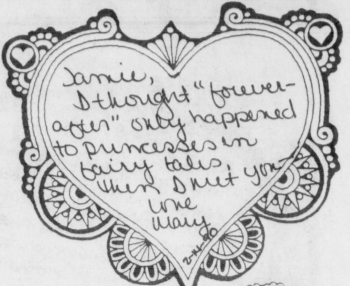 Jamie,
I thought "forever-
after" only happened
to princesses in
fairy tales,
then I met you—
Love
Mary
2-14-80